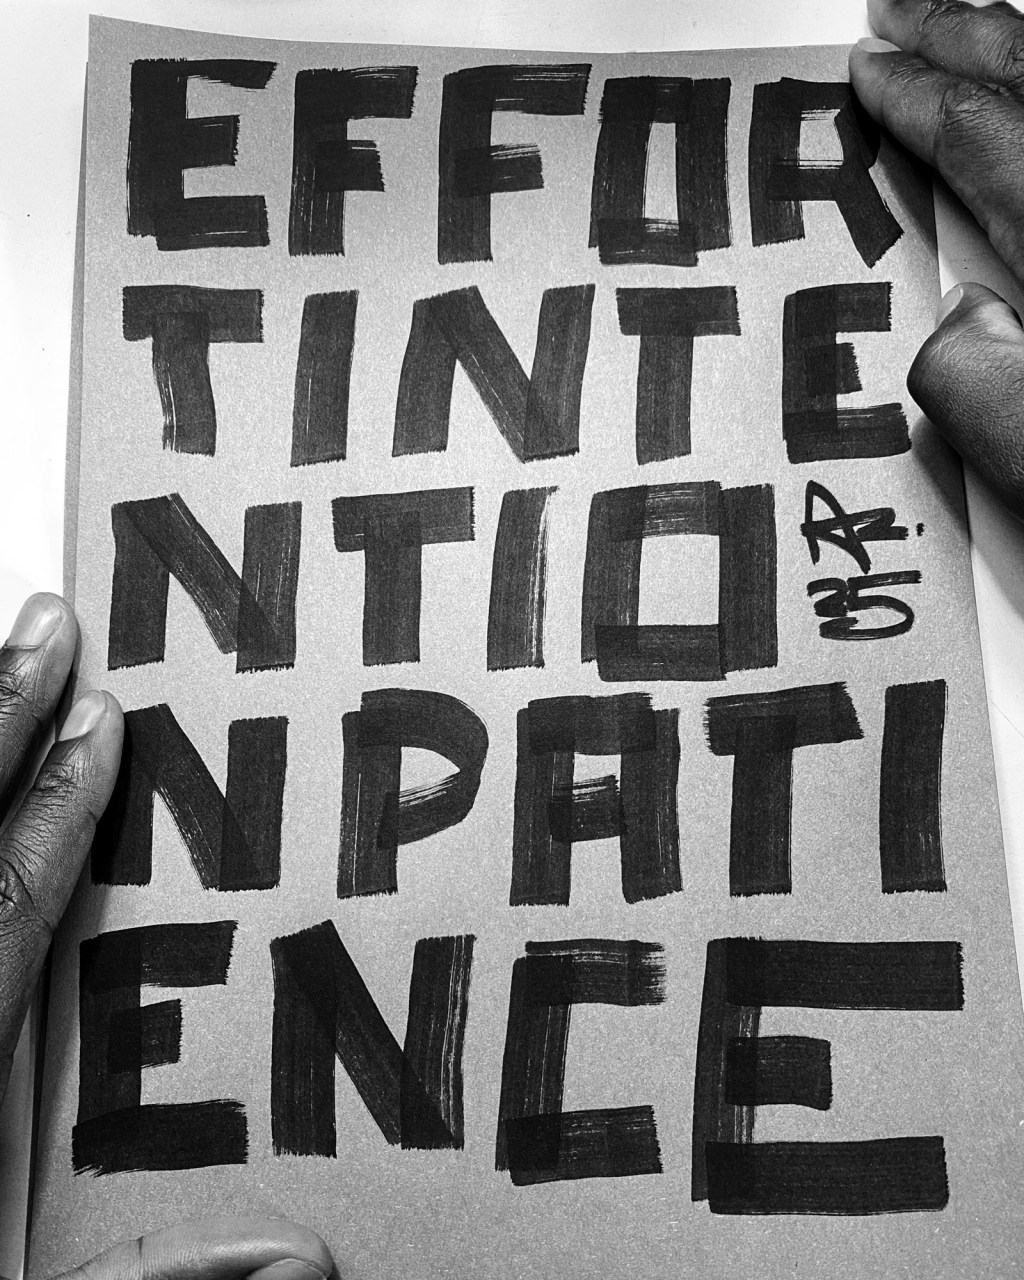 EFFOR
TINTE
NTIO
35
NPATI
ENCE